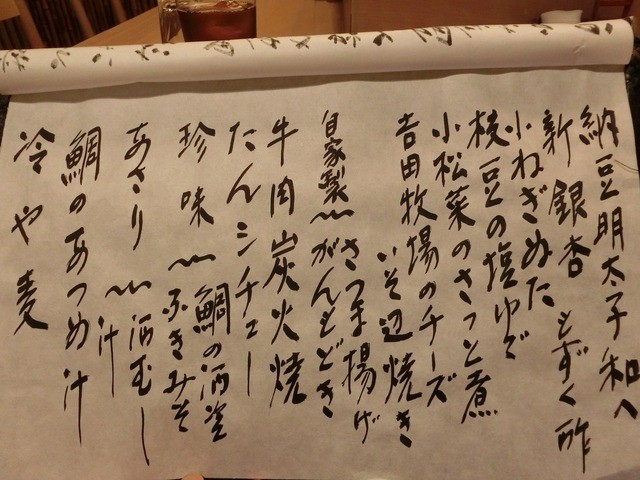 納豆明太子和へ
新銀杏 もずく酢
小ねぎぬた
枝豆の塩ゆで
小松菜のさっと煮
吉田牧場のチーズ
いそ辺焼き
自家製〰さつま揚げ
がんもどき
牛肉炭火焼
たんシチュー
珍味〰鯛の酒塗
ふきみそ
あさり〰酒むし
汁
鯛のあつめ汁
冷や麦